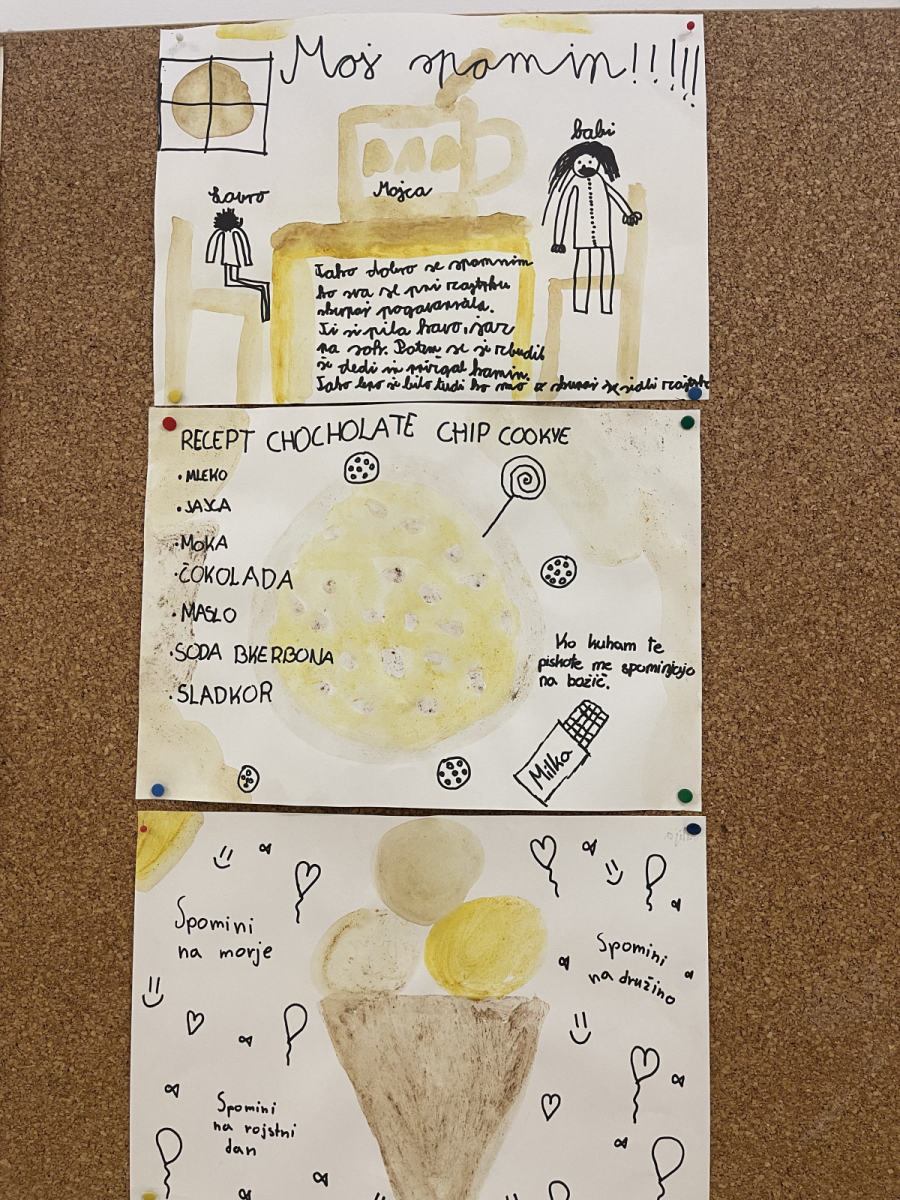 Moj spomin!!!!!
babi
Lovro
Mojca
Tako dobro se spomnim
ko sva se pri zajtrku
skupaj pogovarjala.
Ti si pila kavo, jaz
pa sok. Potem se je zbudil
še dedi in prižgal kamin.
Tako lepo je bilo tudi ko smo skupaj jedli zajtrk
RECEPT CHOCHOLATE CHIP COOKYE
• MLEKO
• JAJCA
• MOKA
• ČOKOLADA
• MASLO
• SODA BKERBONA
• SLADKOR
Ko kuham te
piškote me spominjajo
na božič.
Milka
Spomini
na morje
Spomini
na družino
Spomini
na rojstni
dan